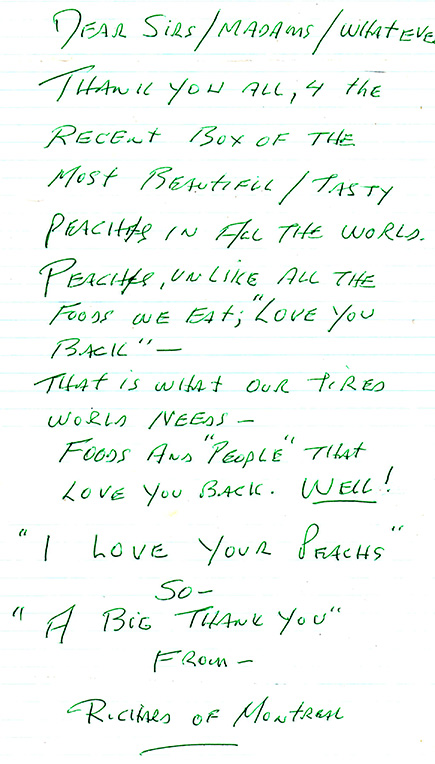 DEAR SIRS/MADAMS/WHATEVE
THANK YOU ALL, 4 the
RECENT BOX OF THE
MOST BEAUTIFUL/TASTY
PEACHES IN ALL THE WORLD.
PEACHES, UNLIKE ALL THE
FOODS WE EAT; "LOVE YOU
BACK" —
THAT IS WHAT OUR TIRED
WORLD NEEDS —
FOODS AND "PEOPLE" THAT
LOVE YOU BACK. WELL!
"I LOVE YOUR PEACHS"
SO —
"A BIG THANK YOU"
FROM —
RICHARD OF MONTREAL